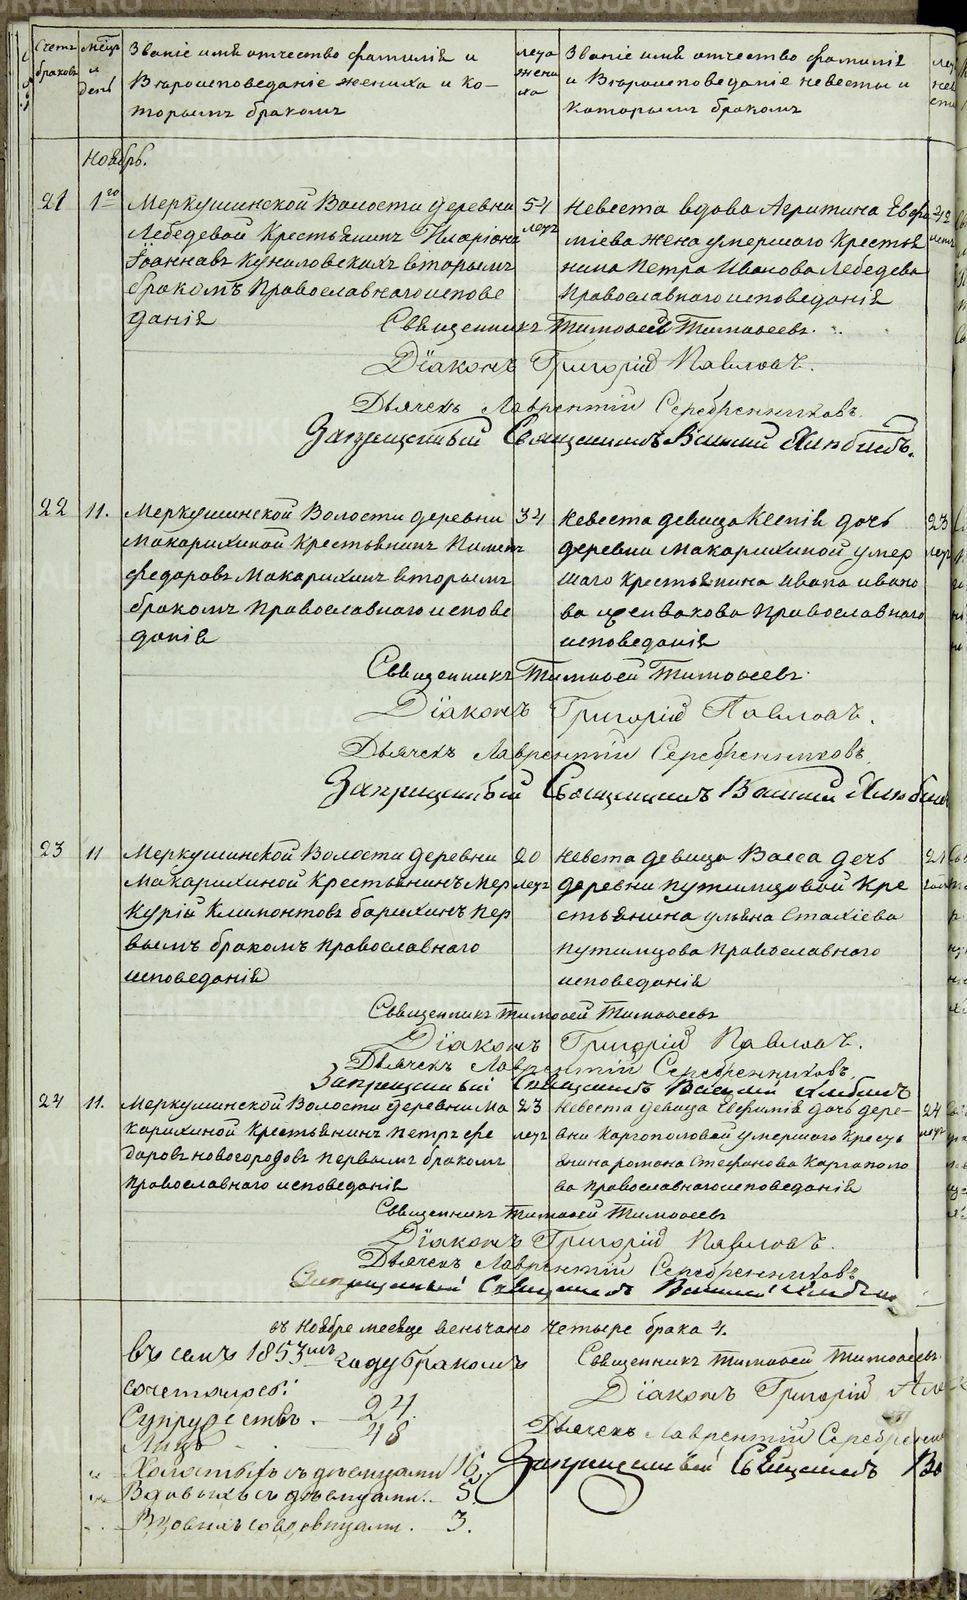 Счетъ браковъ
Мѣсяцъ и день
Званіе имя отчество фамилія и
Вѣроисповеданіе жениха и ко-
торымъ бракомъ
лета жени ха
Званіе имя отчество фамилія
и Вѣроисповеданіе невесты и
которымъ бракомъ
Ноябрь.
21 1го
Меркушинской Волости деревни
Лебедевой Крестьянинъ Иларіонъ
Іоанновъ Куналовскихъ вторымъ
бракомъ Православнаго испове
данія
54 летъ
Невеста вдова Агрипина Евфи
міева жена умершаго Крестья
нина Петра Иванова Лебедева
Православнаго исповеданія
42
Священникъ Тимоѳей Тимоѳеевъ.
Діаконъ Григорій Павловъ.
Дьячекъ Лаврентій Серебренниковъ
Запрещенный Священникъ Василий Хлюбинъ.
22 11.
Меркушинской Волости деревни
Макарихиной Крестьянинъ Пименъ
Федоровъ Макарихинъ вторымъ
бракомъ Православнаго испове
данія
34
Невеста девица Ксенія дочь
деревни Макарихиной умер
шаго Крестьянина Ивана Ивано
ва Православнаго
исповеданія
23 летъ
Священникъ Тимоѳей Тимоѳеевъ.
Діаконъ Григорій Павловъ.
Дьячекъ Лаврентій Серебренниковъ
Запрещенный Священникъ Василий
23 11
Меркушинской Волости деревни
Макарихиной Крестьянинъ Мер
курій Климонтовъ Барихинъ пер
вымъ бракомъ Православнаго
исповеданія
20 летъ
Невеста девица Васса дочь
деревни Путимцовой Кре
стьянина Ульяна Стахіева
Путимцова Православнаго
исповеданія
21
Священникъ Тимоѳей Тимоѳеевъ
Діаконъ Григорій Павловъ.
Дьячекъ Лаврентій Серебренниковъ
Запрещенный Священникъ Василий
24 11.
Меркушинской Волости деревни Ма
карихиной Крестьянинъ Петръ Фе
доровъ Новогородовъ первымъ бракомъ
Православнаго исповеданія
23 летъ
Невеста девица Евфимія дочь дере-
вни Каргополовой умершаго Кресть
янина Романа Стефанова Каргаполо
ва Православнаго исповеданія
24 летъ
Священникъ Тимоѳей Тимоѳеевъ
Діаконъ Григорій Павловъ.
Дьячекъ Лаврентій Серебренниковъ
Запрещенный Священникъ Василий
въ Ноябре месяце венчано четыре брака 4.
Въ семъ 1853мъ году бракомъ
сочеталось:
Супружествъ. 24.
Лицъ 48
Холостыхъ съ девицами 16.
Вдовыхъ съ девицами. 5.
Вдовыхъ со вдовицами. 3.
Священникъ Тимоѳей Тимоѳеевъ
Діаконъ Григорій
Дьячекъ Лаврентій
Запрещенный Священникъ
METRIKI.GASO-URAL.RU